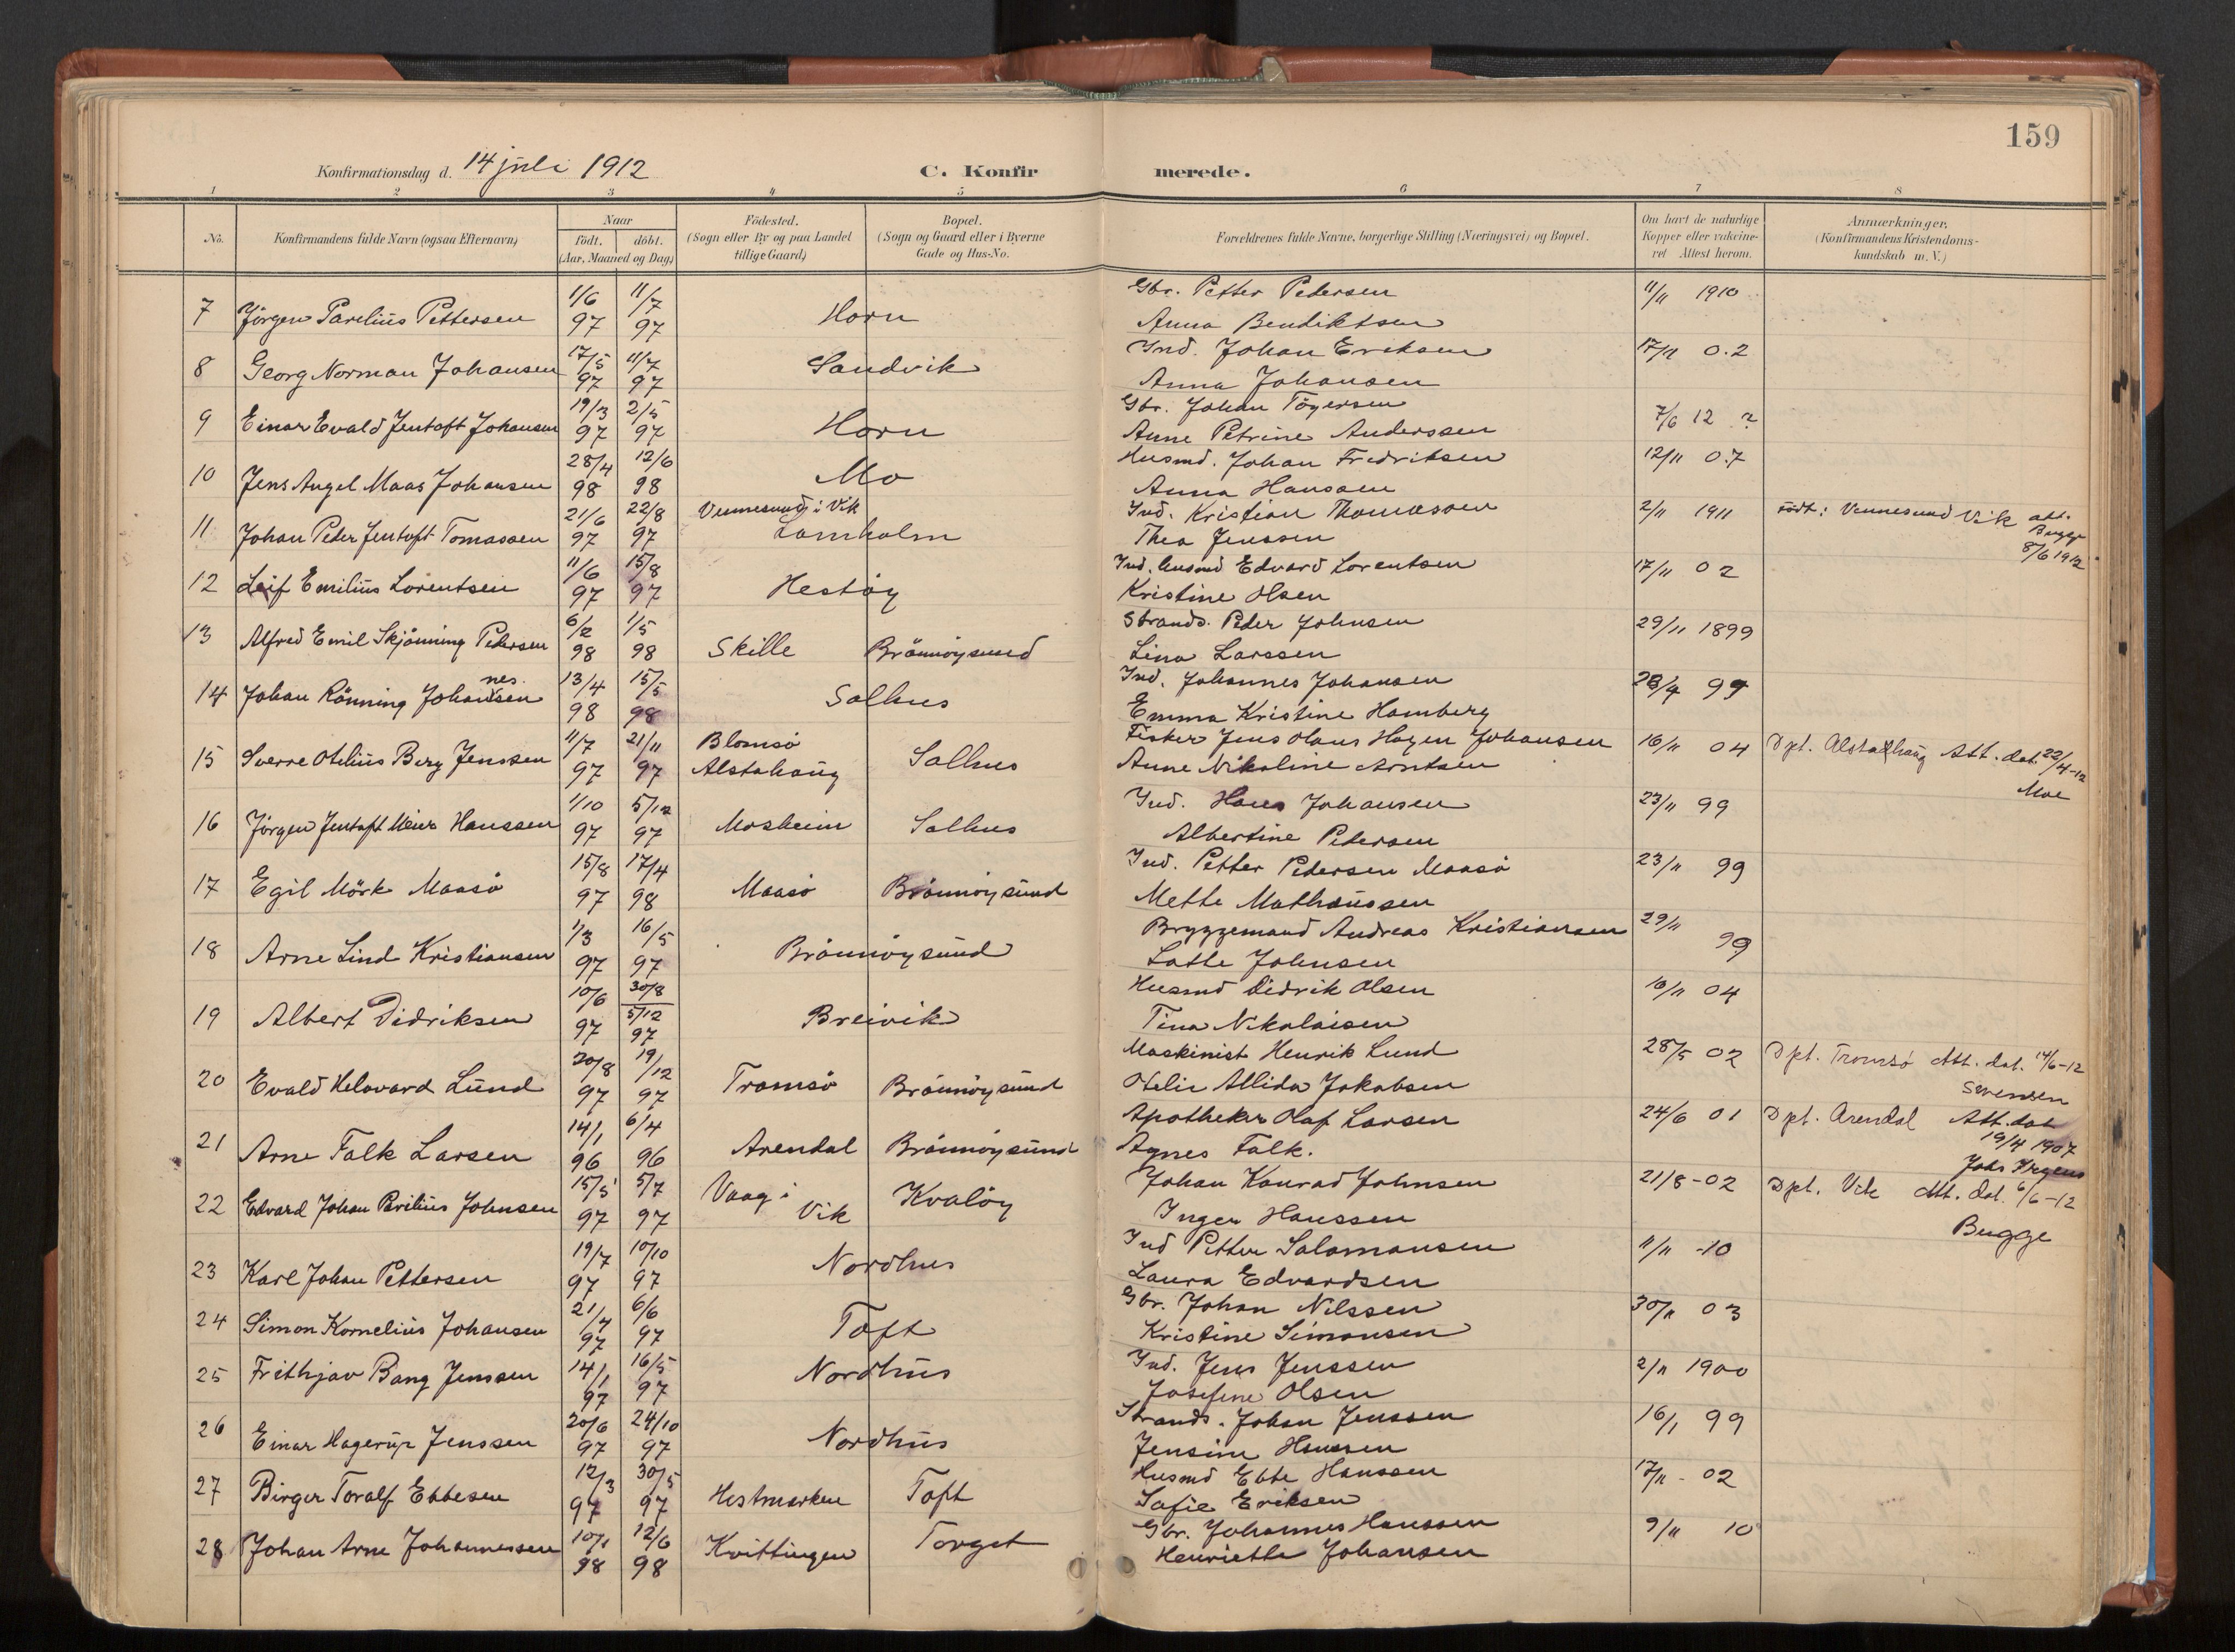 159
Konfirmationsdag d. 14 juli 1912
C. Konfir merede.
1 2 3 4 5 6 7 8
No.
Konfirmandens fulde Navn (ogsaa Efternavn)
Naar
födt. döbt.
(Aar, Maaned og Dag)
Födested.
(Sogn eller By og paa Landet
tillige Gaard)
Bopæl.
(Sogn og Gaard eller i Byerne
Gade og Hus-No.
Forældrenes fulde Navne, borgerlige Stilling (Næringsvei) og Bopæl.
Om havt de naturlige
Kopper eller vakcine-
ret Attest herom.
Anmærkninger,
(Konfirmandens Kristendoms-
kundskab m. V.)
1/6 11/7 Gbr. Petter Pedersen 11/11 1910
7 Jörgen Parelius Pettersen 97 97 Horn Anna Bendiktsen
17/5 11/7 Ind. Johan Eriksen 17/11 0.2
8 Georg Norman Johansen 97 97 Sandvik Anna Johansen
19/3 2/5 Gbr. Johan Tögersen 7/6 12 ?
9 Einar Evald Jentoft Johansen 97 97 Horn Anne Petrine Anderssen
28/4 12/6 Husmd. Johan Fredriksen 12/11 0.7
10 Jens Angel Maas Johansen 98 98 Mo Anna Hanssen
21/6 22/8 Vennesund i Vik Ind. Kristian Thomassen 2/11 1911 födt: Vennesund Vik att. Bugge
11 Johan Peder Jentoft Tomassen 97 97 Lamholm Thea Jenssen 8/6 1912
11/6 15/8 Ind. husmd Edvard Lorentsen 17/11 02
12 Leif Emilius Lorentsen 97 97 Hestöy Kristine Olsen
6/2 1/5 Strands. Peder Johnsen 29/11 1899
13 Alfred Emil Skjönning Pedersen 98 98 Skille Brönnöysund Lina Larssen
nes. 13/4 15/5 Ind. Johannes Johansen 28/4 99
14 Johan Rönning Johansen 98 98 Salhus Emma Kristine Hamberg
11/7 21/11 Blomsö Fisker Jens Olaus Hagen Johansen 16/11 04 Dpt. Alstadhaug Att. dat. 22/4-12
15 Sverre Otelius Berg Jenssen 97 97 Alstahaug Salhus Anne Nikoline Arntsen Moe
1/10 5/12 Ind. Hans Johansen 23/11 99
16 Jörgen Jentoft Meier Hanssen 97 97 Mosheim Salhus Albertine Pedersen
15/8 17/4 Ind. Petter Pedersen Maasö 23/11 99
17 Egil Mörk Maasö 97 98 Maasö Brönnöysund Mette Matheussen
1/3 16/5 Bryggemand Andreas Kristiansen 29/11 99
18 Arne Lind Kristiansen 97 97 Brönnöysund Lotte Johnsen
10/6 30/8 Husmd Didrik Olsen 10/11 04
19 Albert Didriksen 97 5/12 97 Breivik Tina Nikolaisen
20/8 19/12 Maskinist Henrik Lund 28/5 02 Dpt. Tromsö Att. dat. 14/6-12
20 Evald Helovard Lund 97 97 Tromsö Brönnöysund Otelie Allida Jakobsen Svensen
14/1 6/4 Apotheker Olaf Larsen 24/6 01 Dpt. Arendal Att. dat
21 Arne Falk Larsen 96 96 Arendal Brönnöysund Agnes Falk. 19/4 1907
Johs Irgens
15/5 5/7 Vaag i Johan Konrad Johnsen 21/8-02 Dpt. Vik Att. dat. 6/6-12
22 Edvard Johan Parilius Johnsen 97 97 Vik Kvalöy Inger Hanssen Bugge
19/7 10/10 Ind Petter Salamonsen 11/11 -10
23 Karl Johan Pettersen 97 97 Nordhus Laura Edvardsen
21/4 6/6 Gbr. Johan Nilssen 30/11 03
24 Simon Kornelius Johansen 97 97 Toft Kristine Simonsen
14/1 16/5 Ind. Jens Jenssen 2/11 1900
25 Frithjav Bang Jenssen 97 97 Nordhus Josefine Olsen
20/6 24/10 Strands. Johan Jenssen 16/1 99
26 Einar Hagerup Jenssen 97 97 Nordhus Jensine Hanssen
12/3 30/5 Husmd Ebbe Hanssen 17/11 - 02
27 Birger Toralf Ebbesen 97 97 Hestmarken Toft Sofie Eriksen
10/1 12/6 Gbr. Johannes Hanssen 9/11 10
28 Johan Arne Johannessen 98 98 Kvittingen Torget Henriette Johansen